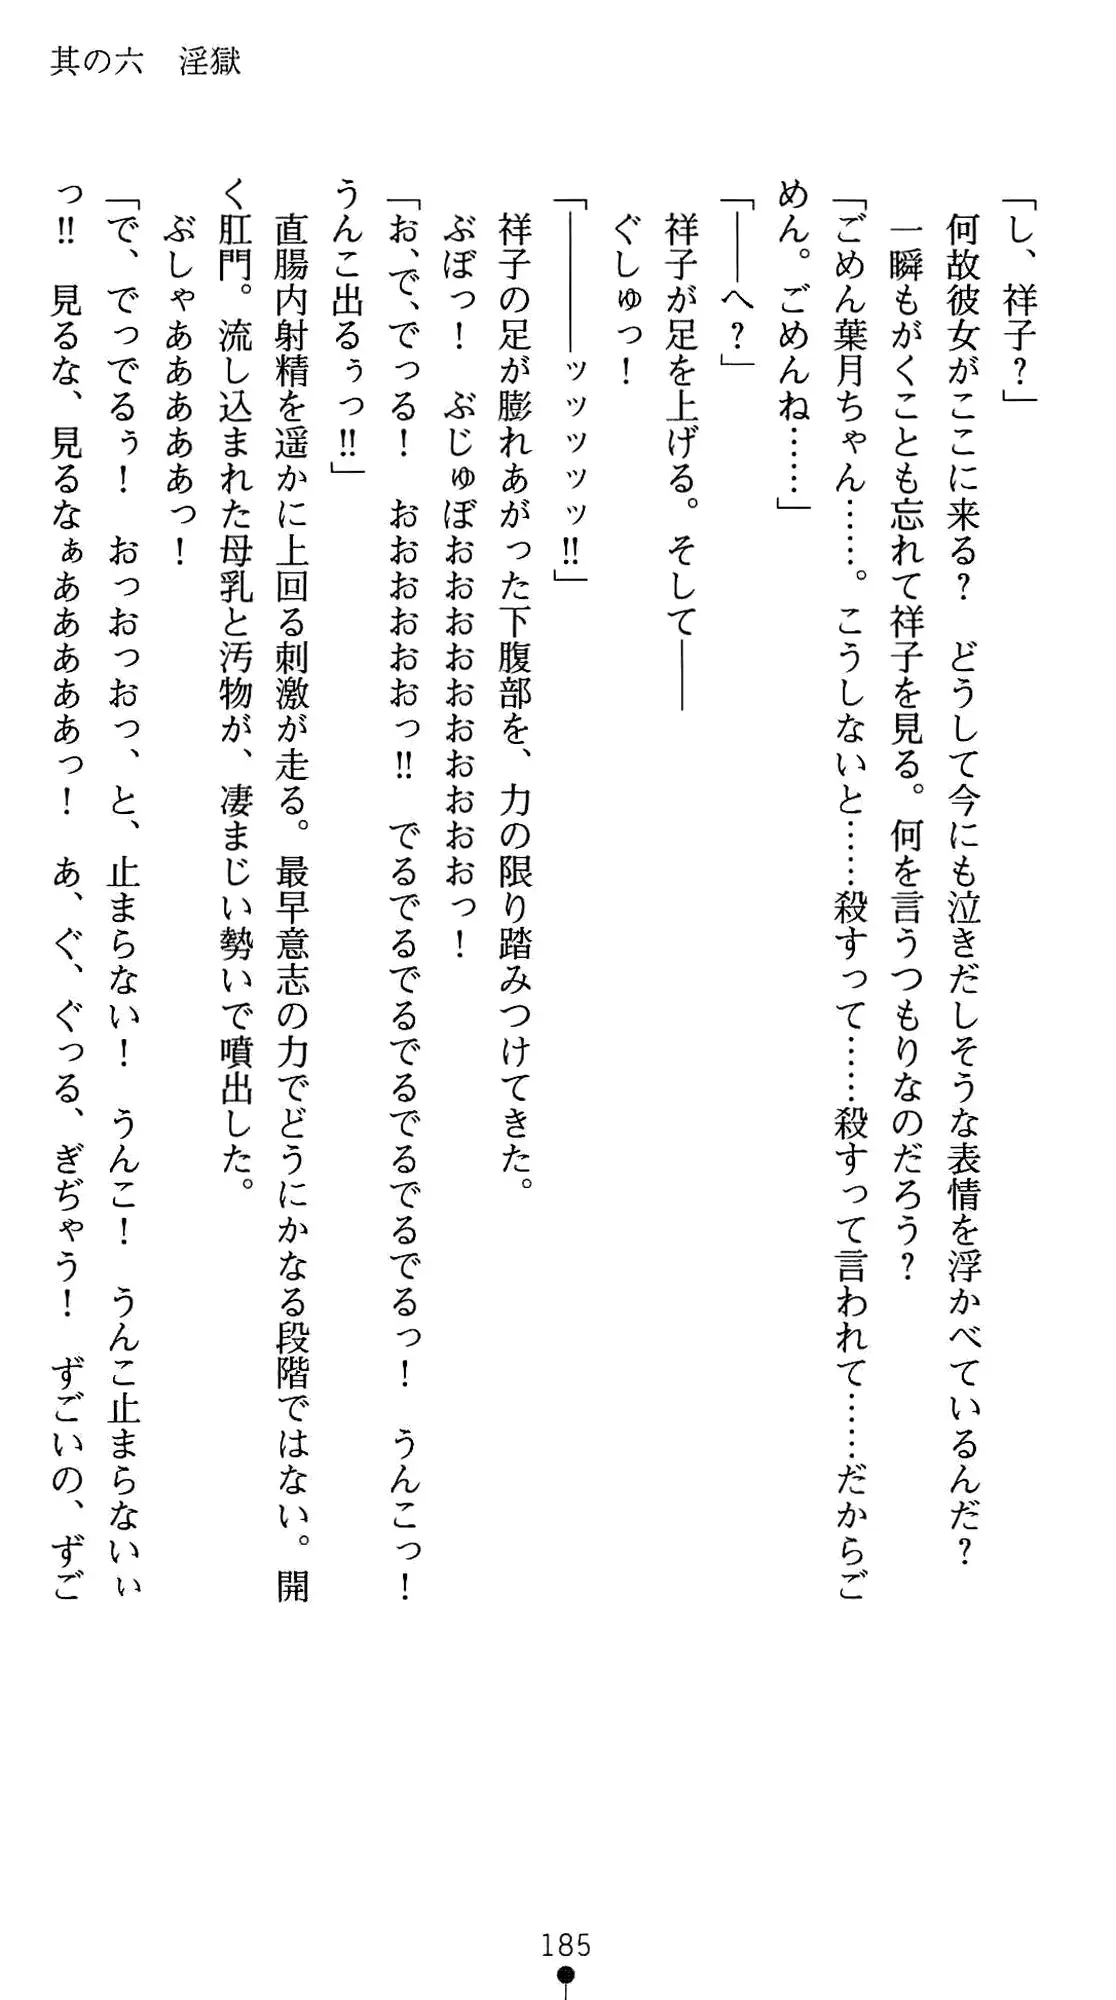 其の六　淫獄
「し、祥子？」
　何故彼女がここに来る？　どうして今にも泣きだしそうな表情を浮かべているんだ？
　一瞬もがくことも忘れて祥子を見る。何を言うつもりなのだろう？
「ごめん葉月ちゃん……。こうしないと……殺すって……殺すって言われて……だからご
めん。ごめんね……」
「――へ？」
　祥子が足を上げる。そして――
　ぐしゅっ！
「――――ッッッッッ!!」
　祥子の足が膨れあがった下腹部を、力の限り踏みつけてきた。
　ぶぼっ！　ぶじゅぼおおおおおおおおおおっ！
「お、で、でっる！　おおおおおおっ!!　でるでるでるでるでるでるでるっ！　うんこっ！
うんこ出るぅっ!!」
　直腸内射精を遥かに上回る刺激が走る。最早意志の力でどうにかなる段階ではない。開
く肛門。流し込まれた母乳と汚物が、凄まじい勢いで噴出した。
　ぶしゃああああああっ！
「で、でっでるぅ！　おっおっおっ、と、止まらない！　うんこ！　うんこ止まらないぃ
っ!!　見るな、見るなぁあああああっ！　あ、ぐ、ぐっる、ぎぢゃう！　ずごいの、ずご
185